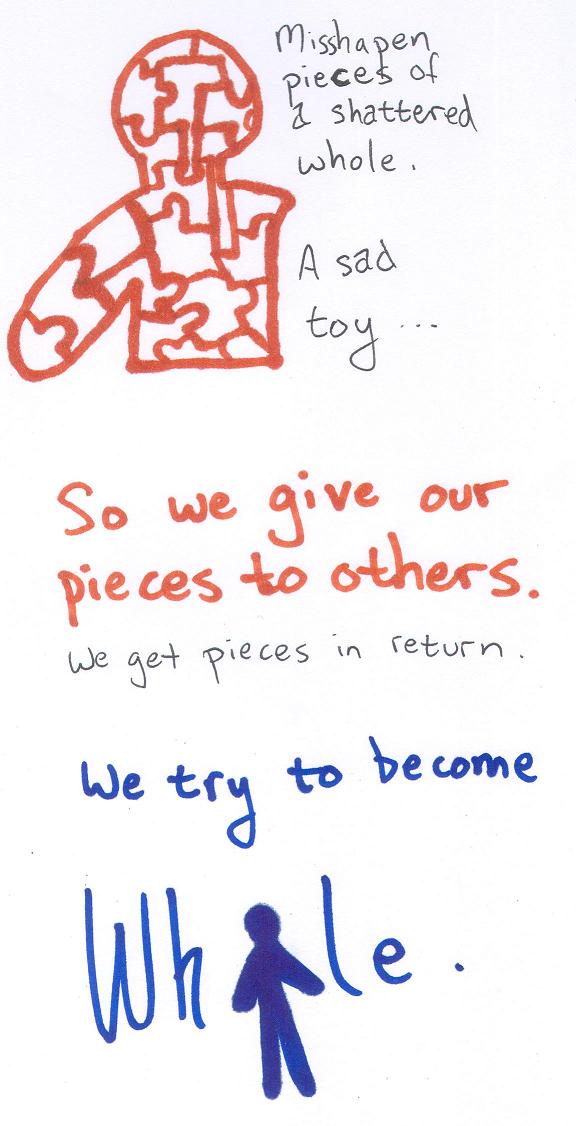 Misshapen
pieces of
a shattered
whole.
A sad
toy ...
So we give our
pieces to others.
We get pieces in return.
We try to become
Whole.